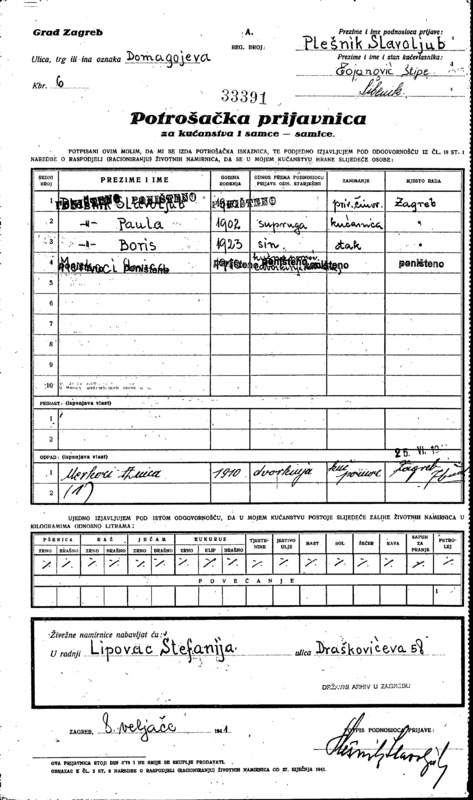 Grad Zagreb
A.
REG. BROJ:
Prezime i ime podnosioca prijave:
Plešnik Slavoljub
Ulica, trg ili ina oznaka Domagojeva
Prezime i ime i stan kućevlasnika:
Stipe
Kbr. 6
Šibenik
33391
Potrošačka prijavnica
za kućanstva i samce — samice.
POTPISANI OVIM MOLIM, DA MI SE IZDA POTROŠAČKA ISKAZNICA, TE PODJEDNO IZJAVLJUJEM POD ODGOVORNOŠĆU IZ ČL. 18 ST. 1
NAREDBE O RASPODJELI (RACIONIRANJU) ŽIVOTNIH NAMIRNICA, DA SE U MOJEM KUĆANSTVU HRANE SLIJEDEĆE OSOBE:
REDNI BROJ
PREZIME I IME
GODINA ROĐENJA
ODNOS PREMA PODNOSIOCU PRIJAVE ODN. STARJEŠINI
ZANIMANJE
MJESTO RADA
1 PONIŠTENO Slavoljub PONIŠTENO priv. činov. Zagreb
2 -"- Paula 1902 supruga kućanica "
3 -"- Boris 1923 sin đak "
4 poništeno poništeno poništeno poništeno
5
6
7
8
9
10
PRIRAST: (ispunjava vlast)
1
2
OTPAD: (ispunjava vlast)
25. VI. 19
1 1910 dvorkinja kuć. Zagreb
2 (1)
UJEDNO IZJAVLJUJEM POD ISTOM ODGOVORNOŠĆU, DA U MOJEM KUĆANSTVU POSTOJE SLIJEDEĆE ZALIHE ŽIVOTNIH NAMIRNICA U
KILOGRAMIMA ODNOSNO LITRAMA:
PŠENICA RAŽ JEČAM KUKURUZ TJESTENINE JESTIVO ULJE MAST SOL ŠEĆER KAVA SAPUN ZA PRANJE PETROLEJ
ZRNO BRAŠNO ZRNO BRAŠNO ZRNO BRAŠNO ZRNO KLIP BRAŠNO
POVEĆANJE
Živežne namirnice nabavljat ću:
U radnji Lipovac Štefanija ulica Draškovićeva 58
DRŽAVNI ARHIV U ZAGREBU
ZAGREB, 8. veljače 1941
POTPIS PODNOSIOCA PRIJAVE:
Plešnik Slavoljub
OVA PRIJAVNICA STOJI DIN 0.75 I NE SMIJE SE SKUPLJE PRODAVATI.
OBRAZAC K ČL. 2 ST. 2 NAREDBE O RASPODJELI (RACIONIRANJU) ŽIVOTNIH NAMIRNICA OD 27. SIJEČNJA 1941.